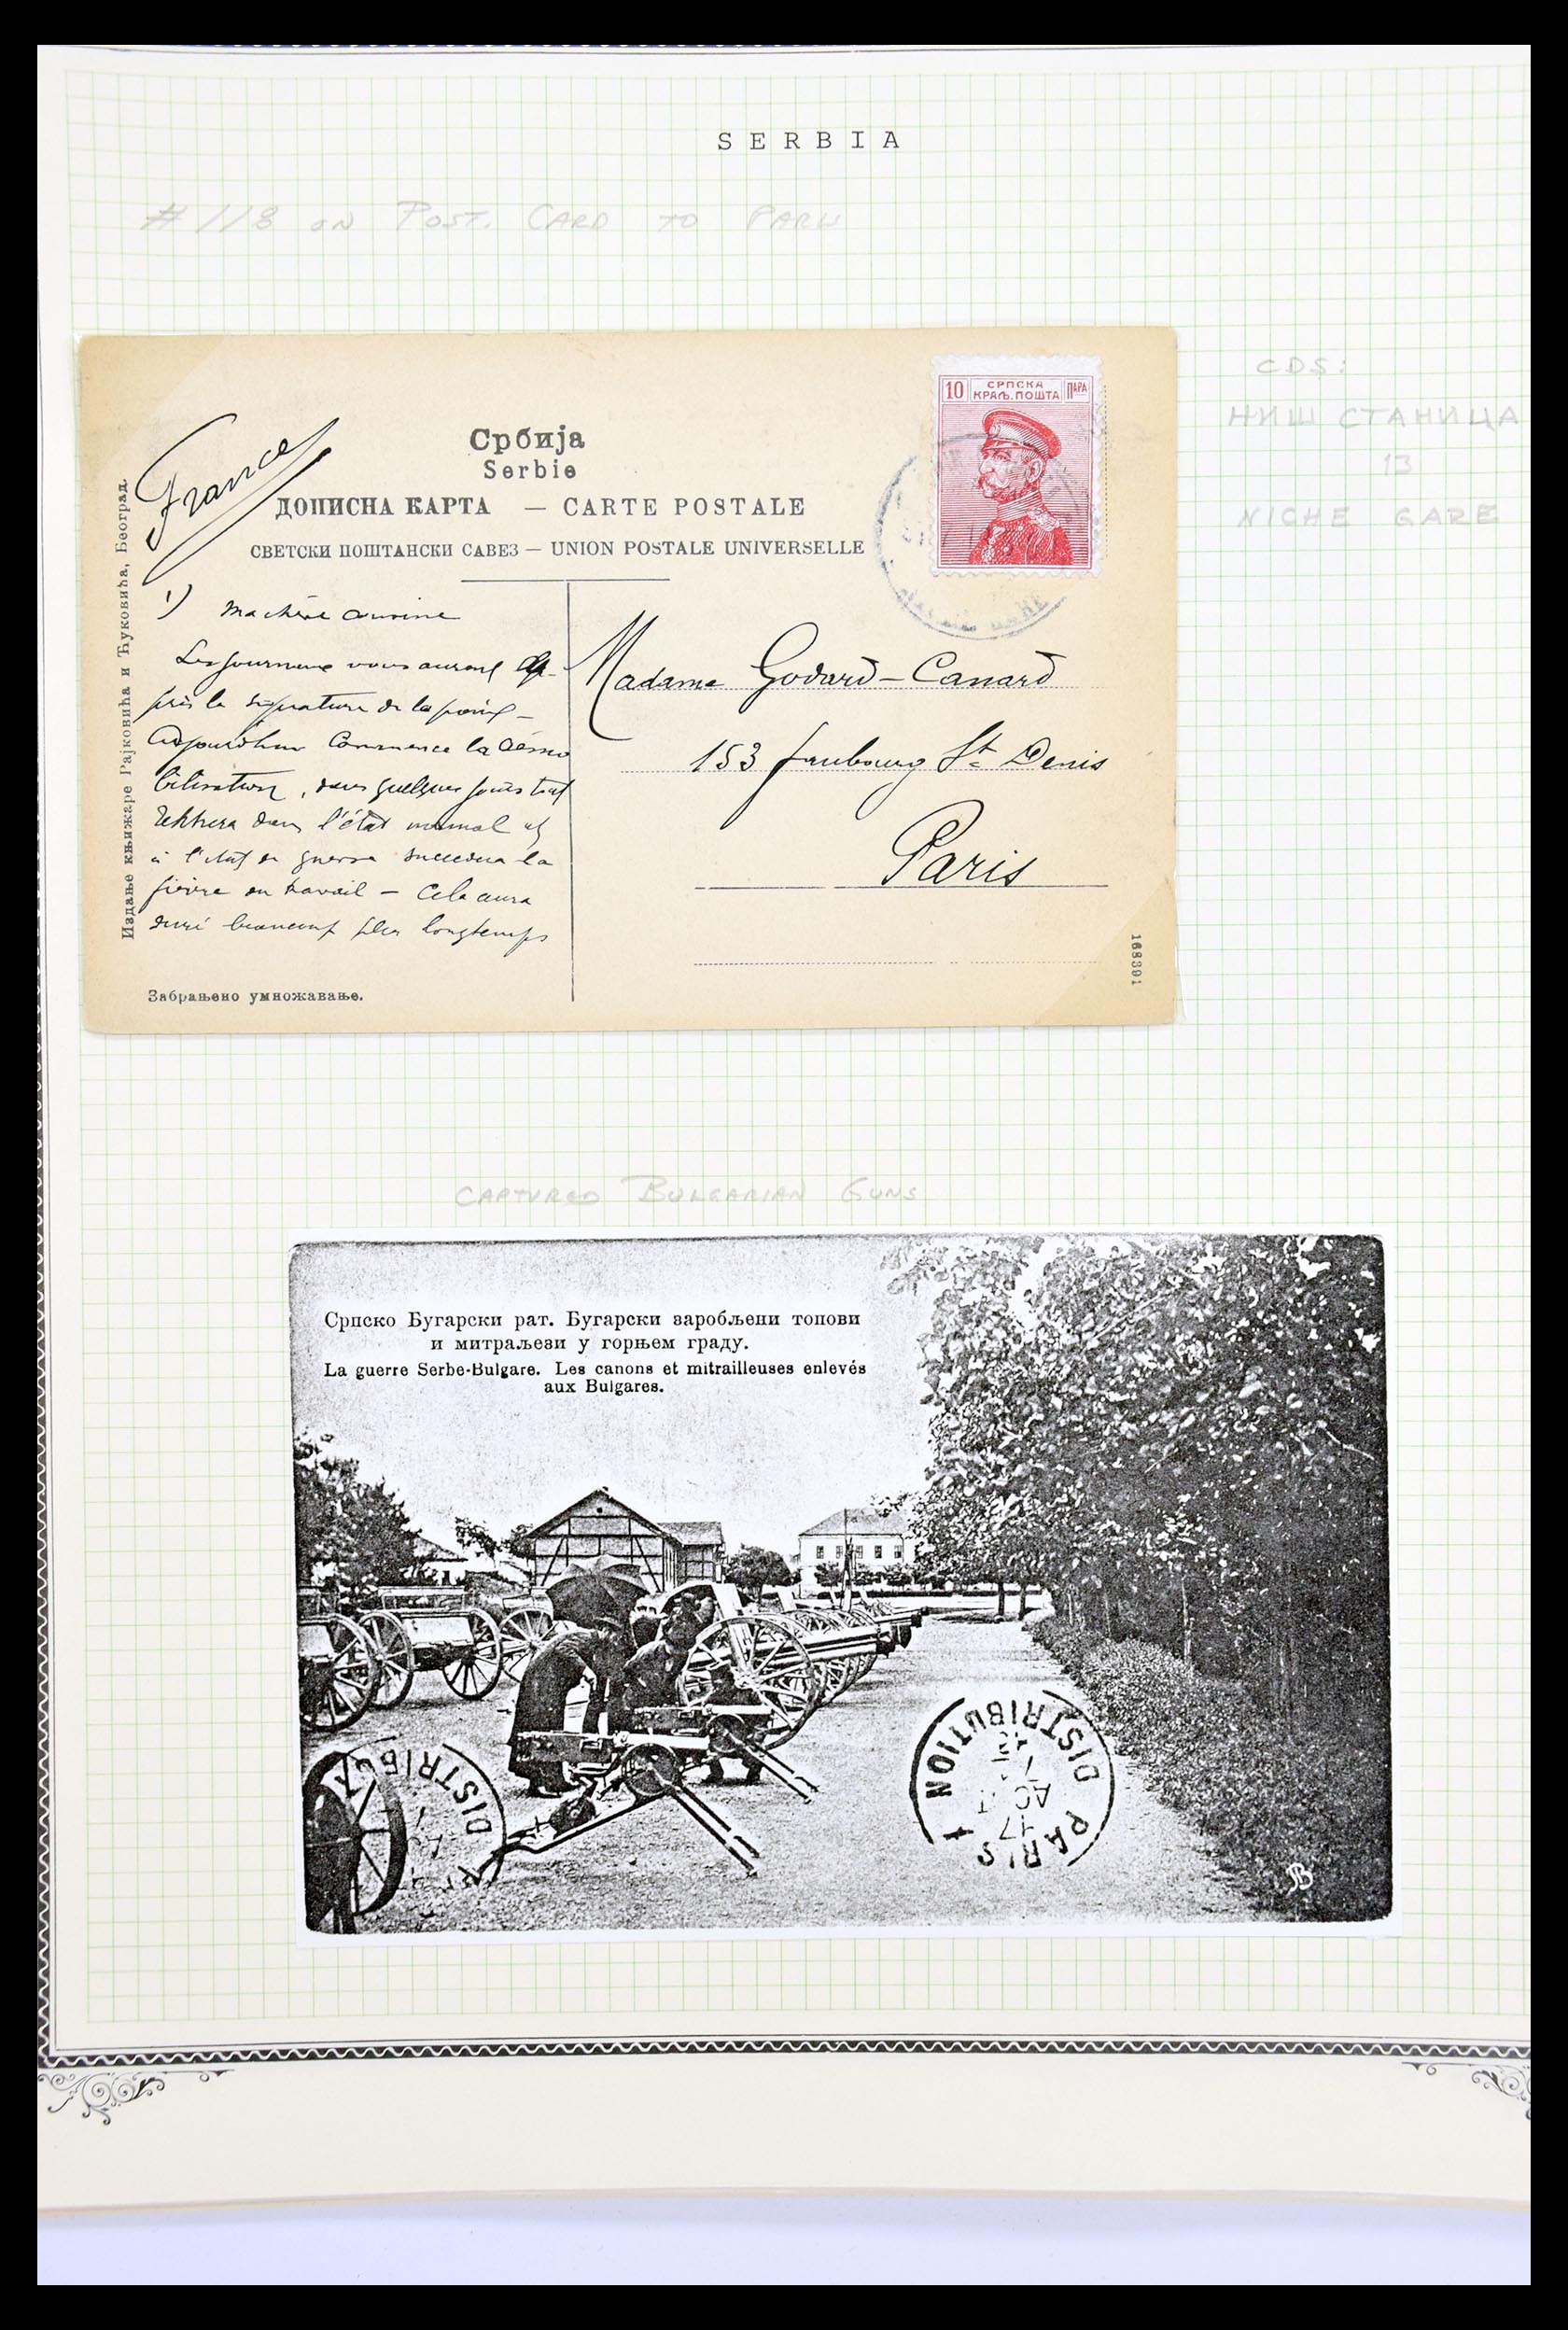 SERBIA
# 118 ON POST. CARD TO PARIS
CDS:
НИШ СТАНИЦА
13
NICHE GARE
France
Србија
Serbie
ДОПИСНА КАРТА — CARTE POSTALE
СВЕТСКИ ПОШТАНСКИ САВЕЗ — UNION POSTALE UNIVERSELLE
10 СРПСКА ПАРА
КРАЉ. ПОШТА
Издање књижаре Рајковића и Ћуковића, Београд.
1) Ma chère cousine
Les journaux vous auront ap-
pris la signature de la paix –
Aujourd'hui commence la démo
bilisation, dans quelques jours tout
rentrera dans l'état normal et
à l'état de guerre succédera la
fièvre du travail – Cela aura
duré beaucoup plus longtemps
Madame Godard-Canard
153 faubourg St Denis
Paris
168391
Забрањено умножавање.
CAPTURED BULGARIAN GUNS
Српско Бугарски рат. Бугарски заробљени топови
и митраљези у горњем граду.
La guerre Serbe-Bulgare. Les canons et mitrailleuses enlevés
aux Bulgares.
DISTRIB
PARIS DISTRIBUTION
17
AOUT
13